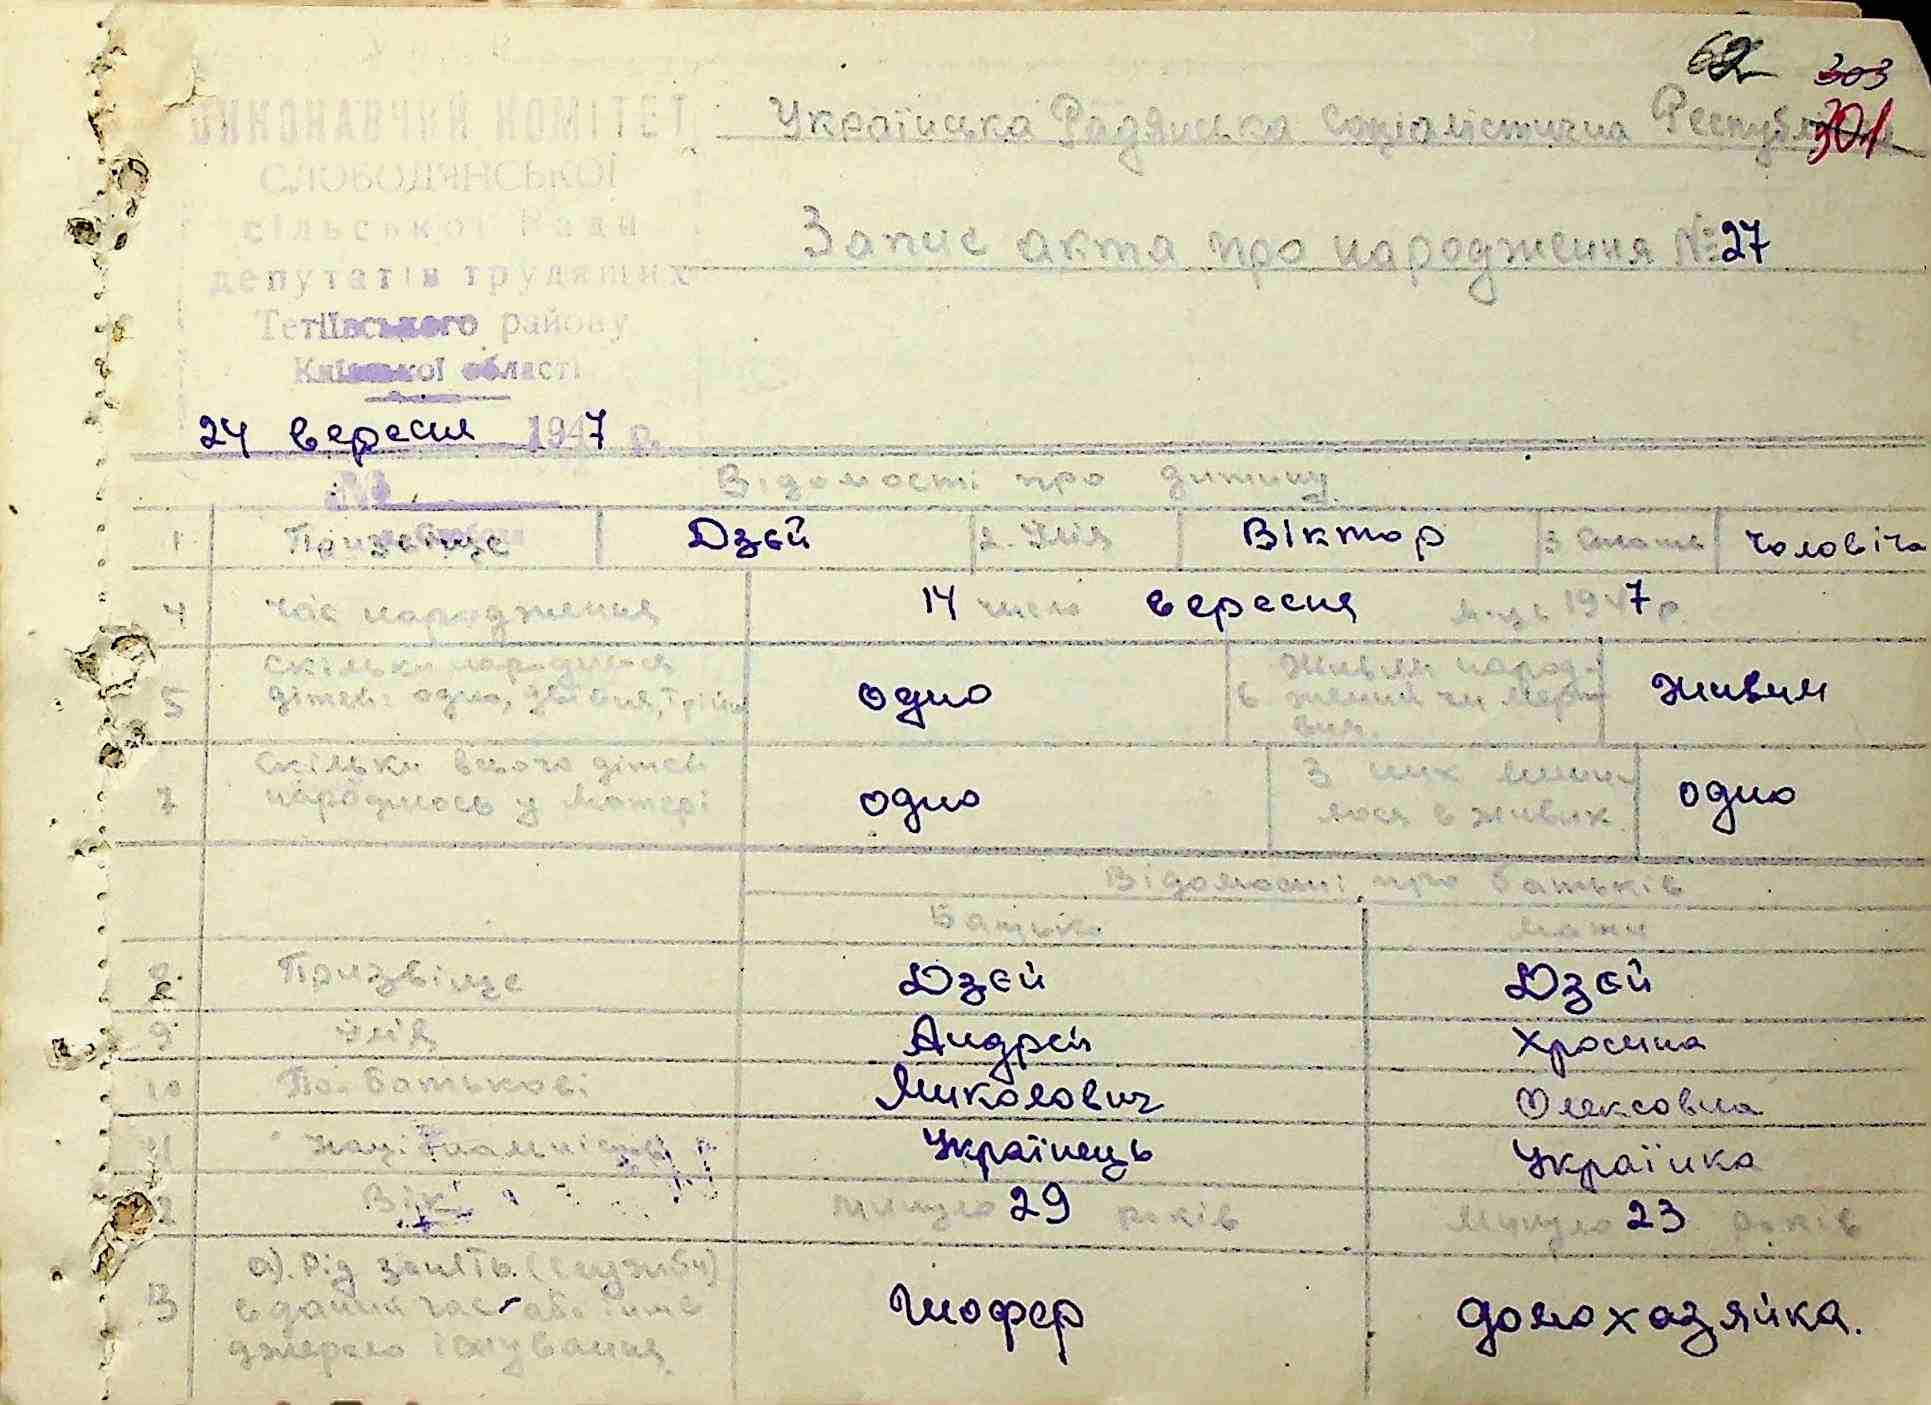 62 303
301
ВИКОНАВЧИЙ КОМІТЕТ
СЛОБОДЯНСЬКОЇ
сільської Ради
депутатів трудящих
Тетіївського району
Київської області
Українська Радянська Соціалістична Республіка
Запис акта про народження № 27
24 вересня 1947 р.
№
Відомості про дитину
1 Прізвище Дзєй 2. Імія Віктор 3 Стать чоловіча
4 час народження 14 число вересня м-ць 1947 р.
5 скільки народилося дітей: одно, двійня, трійня одно 6 живим народжений чи мертвим. живим
7 Скільки всього дітей народилось у матері одно З них лишилося в живих одно
Відомості про батьків
Батько мати
8 Призвіще Дзєй Дзєй
9 Імія Андрєй Хросина
10 По-батькові Миколович Олексовна
11 Національність Українець Українка
12 Вік минуло 29 років Минуло 23 років
13 а). Рід занять (служби) в даний час або інше джерело існування Шофер домохазяйка.